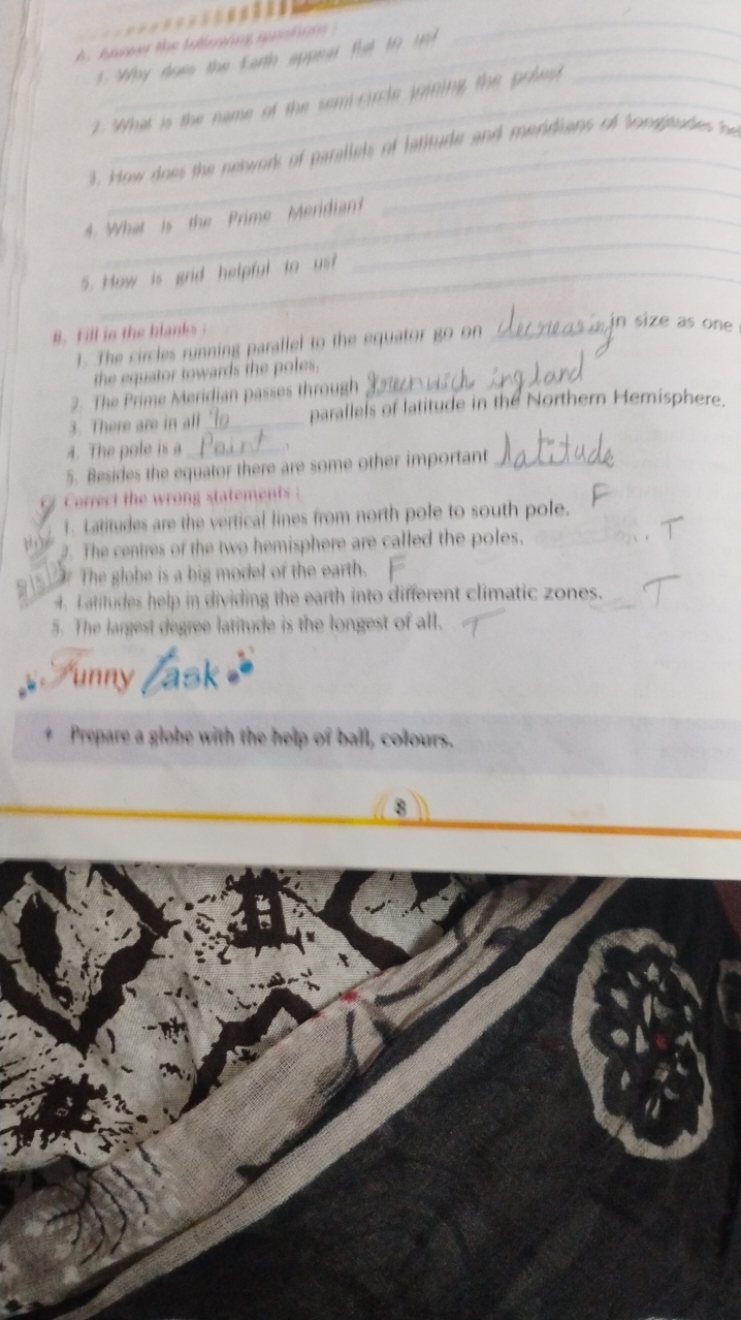 A. Answer the following questions :
1. Why does the Earth appear flat to us?
2. What is the name of the semi-circle joining the poles?
3. How does the network of parallels of latitude and meridians of longitudes
4. What is the Prime Meridian?
5. How is grid helpful to us?
B. Fill in the blanks :
1. The circles running parallel to the equator go on decreasing in size as one
the equator towards the poles.
2. The Prime Meridian passes through ingland
3. There are in all parallels of latitude in the Northern Hemisphere.
4. The pole is a Point.
5. Besides the equator there are some other important latitude
Correct the wrong statements :
1. Latitudes are the vertical lines from north pole to south pole. F
2. The centres of the two hemisphere are called the poles. T
3. The globe is a big model of the earth. F
4. Latitudes help in dividing the earth into different climatic zones. T
5. The largest degree latitude is the longest of all. T
Funny Task
* Prepare a globe with the help of ball, colours.
8